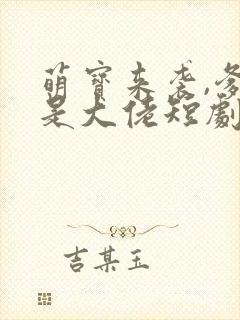 萌寶来袭,爹
是大佬短劇
吉某玉